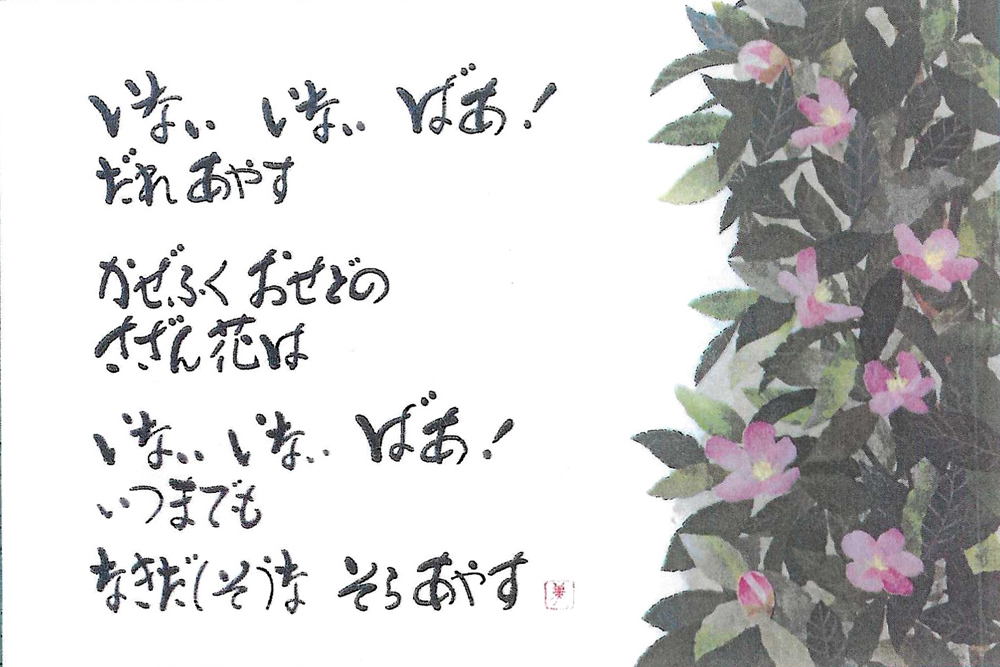 いない いない ばあ!
だれ あやす
かぜふく おせどの
さざん花は
いない いない ばあ!
いつまでも
なきだ(そ)な そら あやす